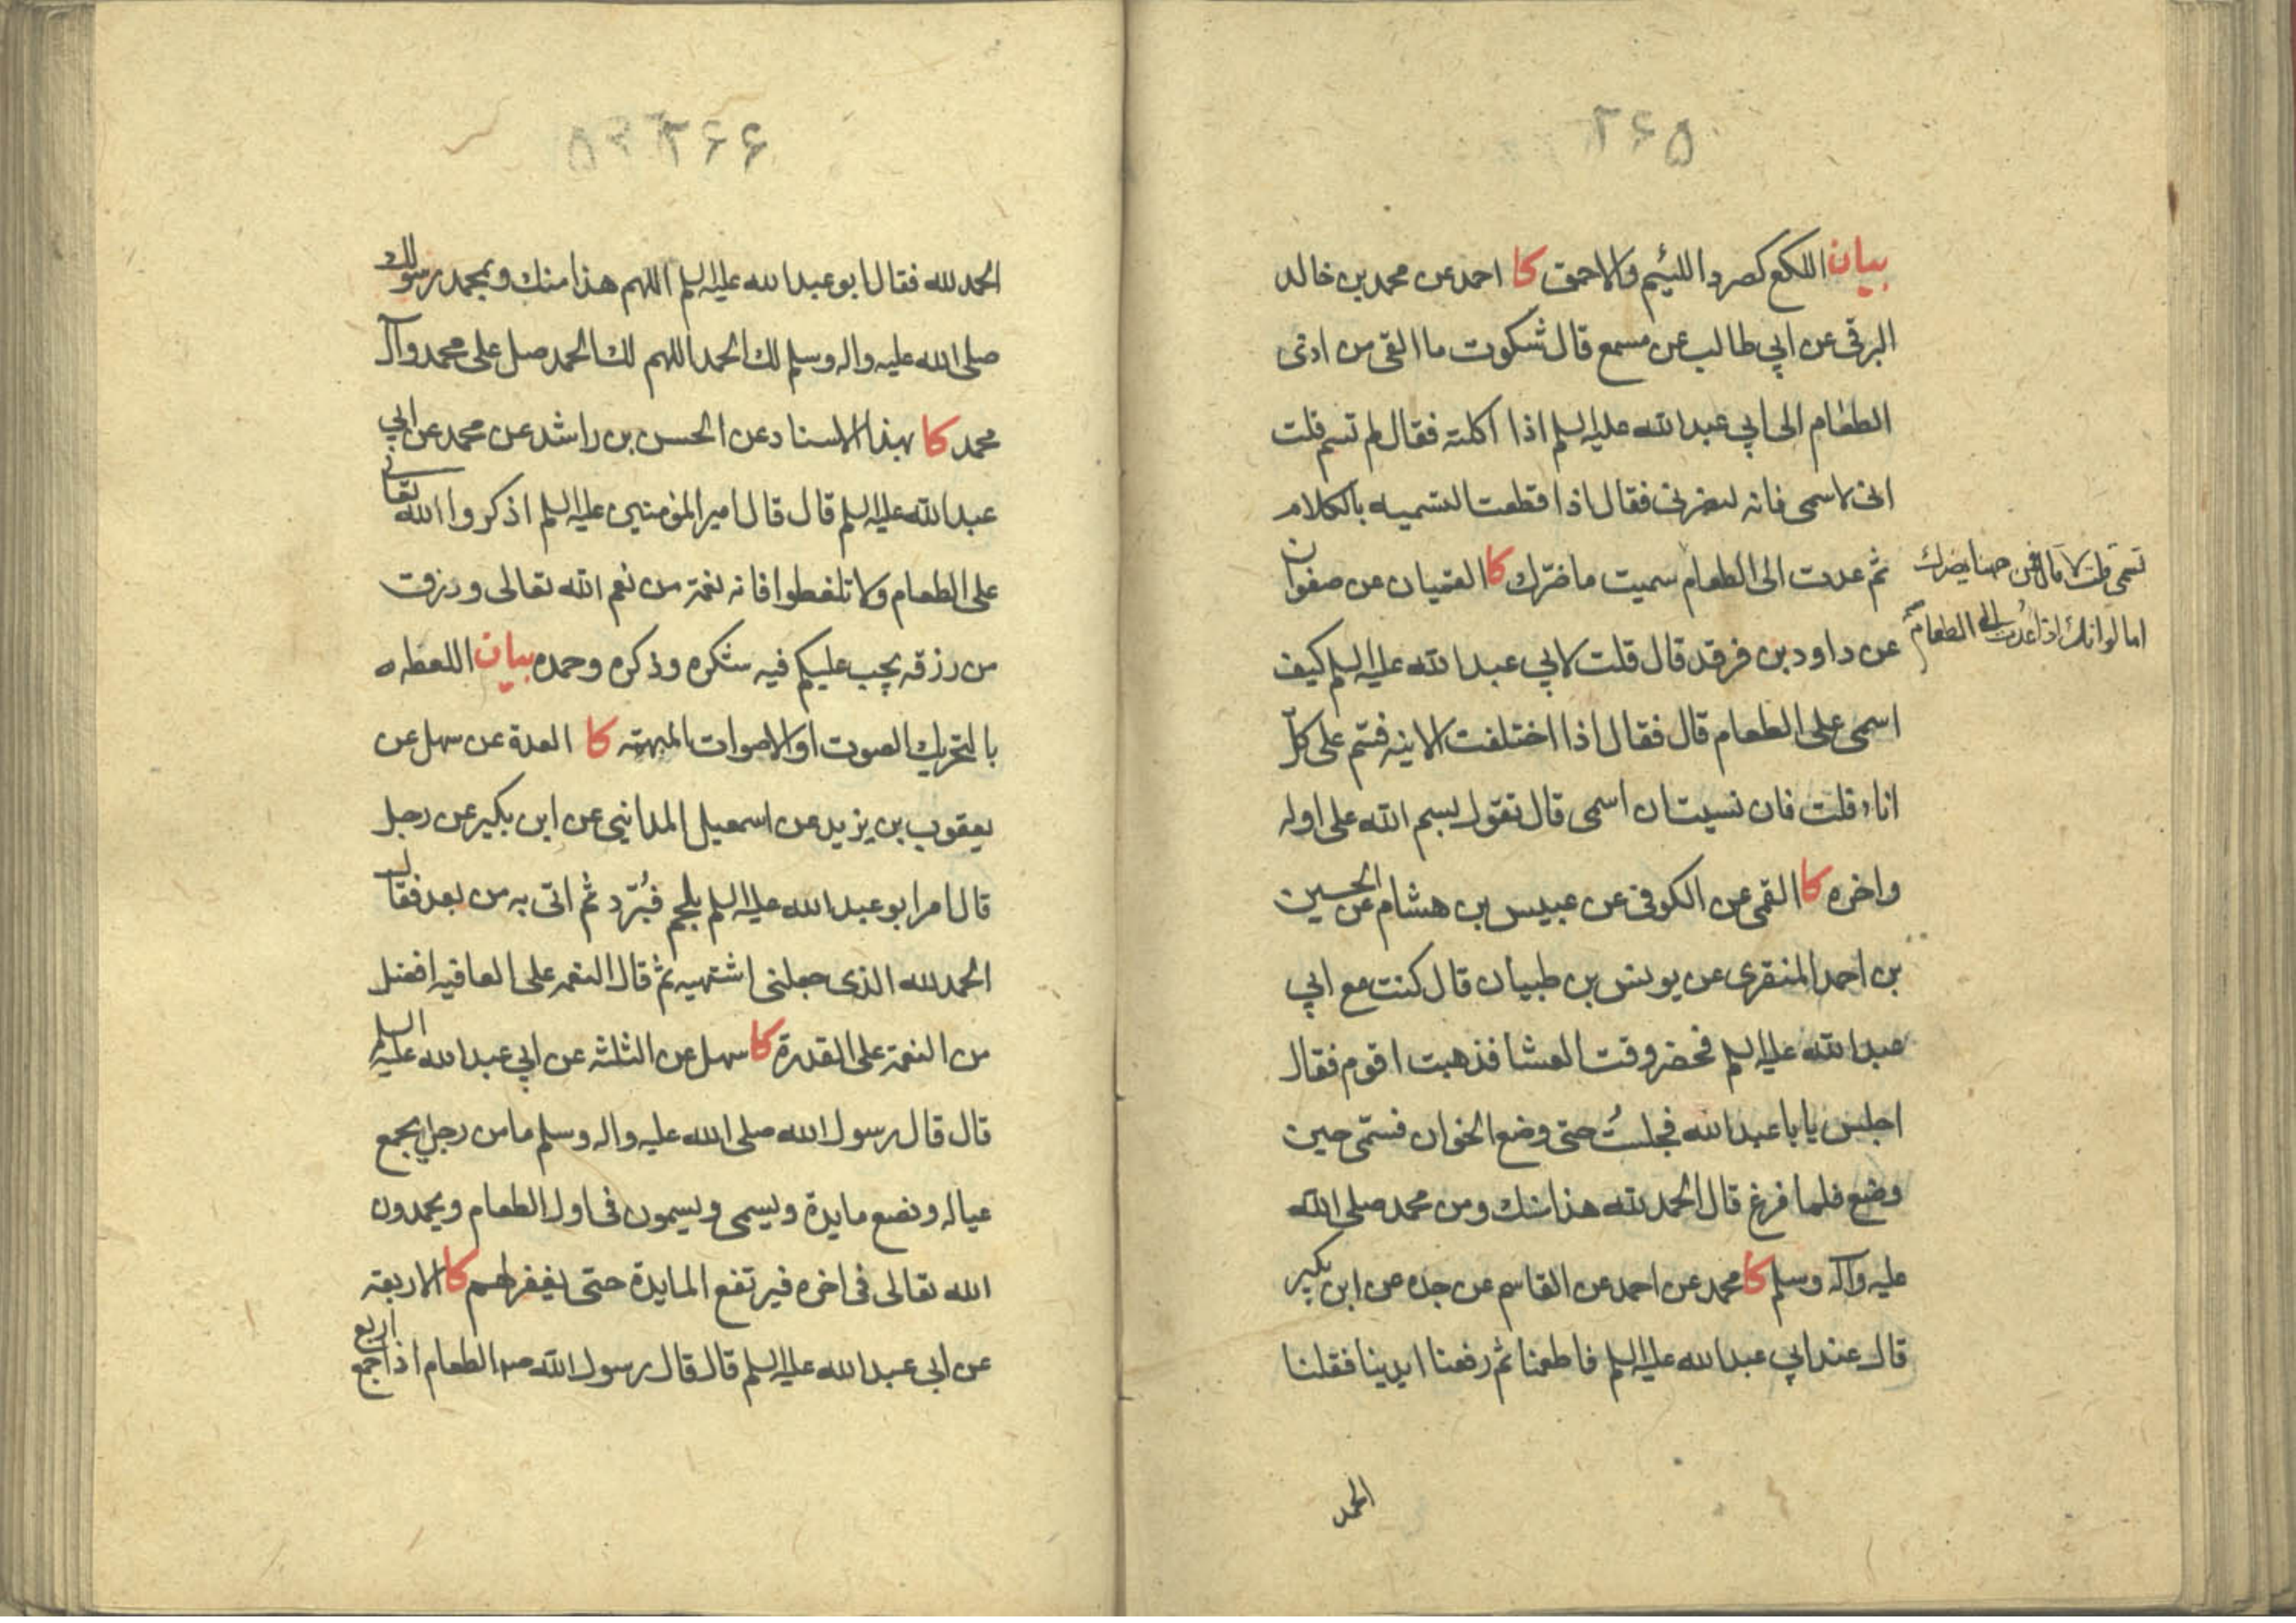 ٢۶۵
بيان اللكع كصرد اللئيم والاحمق كا احمد عن محمد بن خالد
البرقى عن ابي طالب عن مسمع قال شكوت ما القى من اذى
الطعام الى ابي عبد الله عليه السلم اذا اكلته فقال لم تسم قلت
انى لاسمى فانه ليضرنى فقال اذا قطعت التسميه بالكلام
ثم عدت الى الطعام سميت ما ضرّك كا القميان عن صفوان
عن داود بن فرقد قال قلت لابي عبد الله عليه السلم كيف
اسمى على الطعام قال فقال اذا اختلفت الانيه فسّم على كلّ
اناء قلت فان نسيت ان اسمى قال تقول بسم الله على اوله
واخره كا القمى عن الكوفى عن عبيس بن هشام عن الحسين
بن احمد المنقرى عن يونس بن ظبيان قال كنت مع ابي
عبد الله عليه السلم فحضر وقت العشا فذهبت اقوم فقال
اجلس يا با عبد الله فجلستُ حتى وضع الخوان فسمّى حين
وضع فلما فرغ قال الحمد لله هذا منك ومن محمد صلى الله
عليه وآله وسلم كا محمد عن احمد عن القاسم عن جده عن ابن بكير
قال عند ابي عبد الله عليه السلم فاطعمنا ثم رفعنا ايدينا فقلنا
الحمد
تسمى قلت لا قال فمن هنا يضرك
اما لو انك اذا عُدت الى الطعام
٢۶۶
الحمد لله فقال ابو عبد الله عليه السلم اللهم هذا منك وبمحمد رسولك
صلى الله عليه واله وسلم لك الحمد اللهم لك الحمد صل على محمد وآل
محمد كا بهذا الاسناد عن الحسن بن راشد عن محمد عن ابي
عبد الله عليه السلم قال قال امير المؤمنين عليه السلم اذكروا الله تعالى
على الطعام ولا تلغطوا فانه نعمة من نعم الله تعالى ورزق
من رزقه يجب عليكم فيه شكره وذكره وحمده بيان اللغطه
بالتحريك الصوت او الاصوات المبهمة كا العدة عن سهل عن
يعقوب بن يزيد عن اسمعيل المدائنى عن ابن بكير عن رجل
قال امر ابو عبد الله عليه السلم بلحم فبُرّد ثم اتى به من بعد فقال
الحمد لله الذى جعلنى اشتهيه ثم قال النعمه على العافيه افضل
من النعمة على القدرة كا سهل عن الثلثه عن ابي عبد الله عليه السلم
قال قال رسول الله صلى الله عليه واله وسلم ما من رجل يجمع
عياله ويضع مايدة ويسمى ويسمون فى اول الطعام ويحمدون
الله تعالى فى اخره فيرتفع المايدة حتى يغفر لهم كا الاربعة
عن ابي عبد الله عليه السلم قال قال رسول الله صـ الطعام اذا جمع اربع